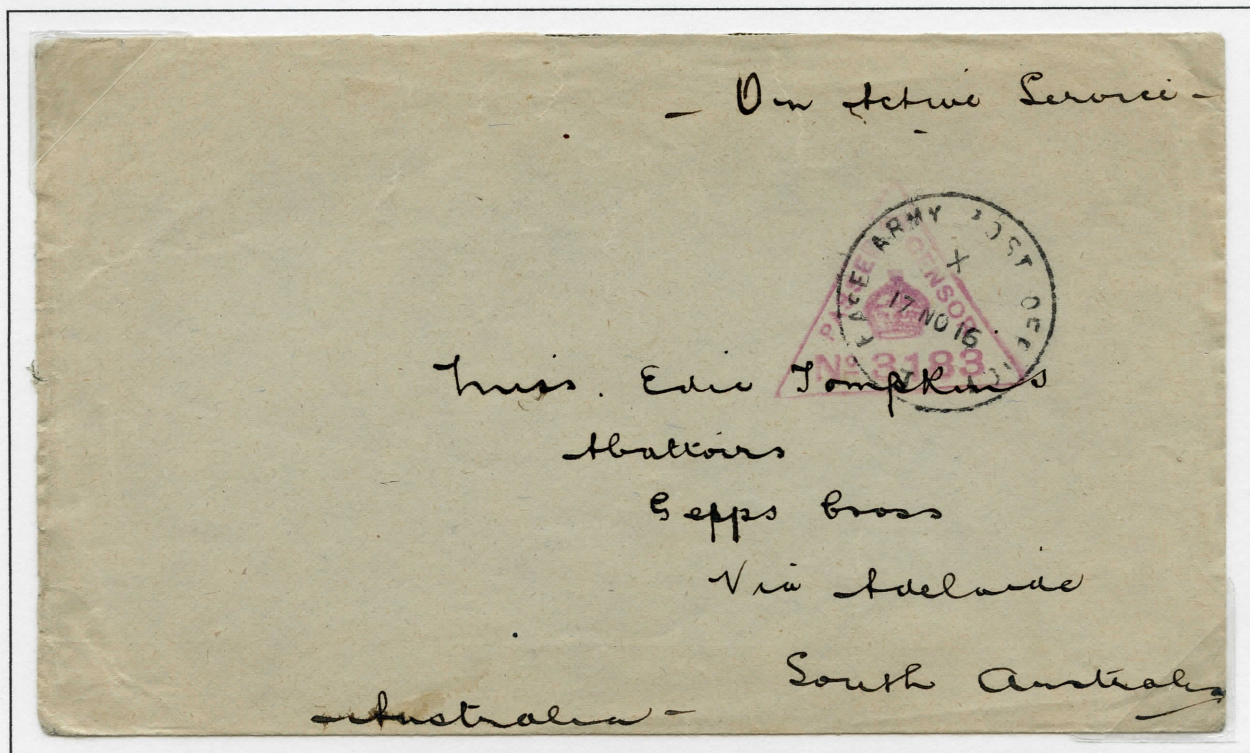 - On Active Service -
ARMY POST OFF
X
17 NO 16
PASSED CENSOR
No 3183
Miss. Edie Tompkins
Abattoirs
Gepps Cross
Via Adelaide
South Australia
- Australia -